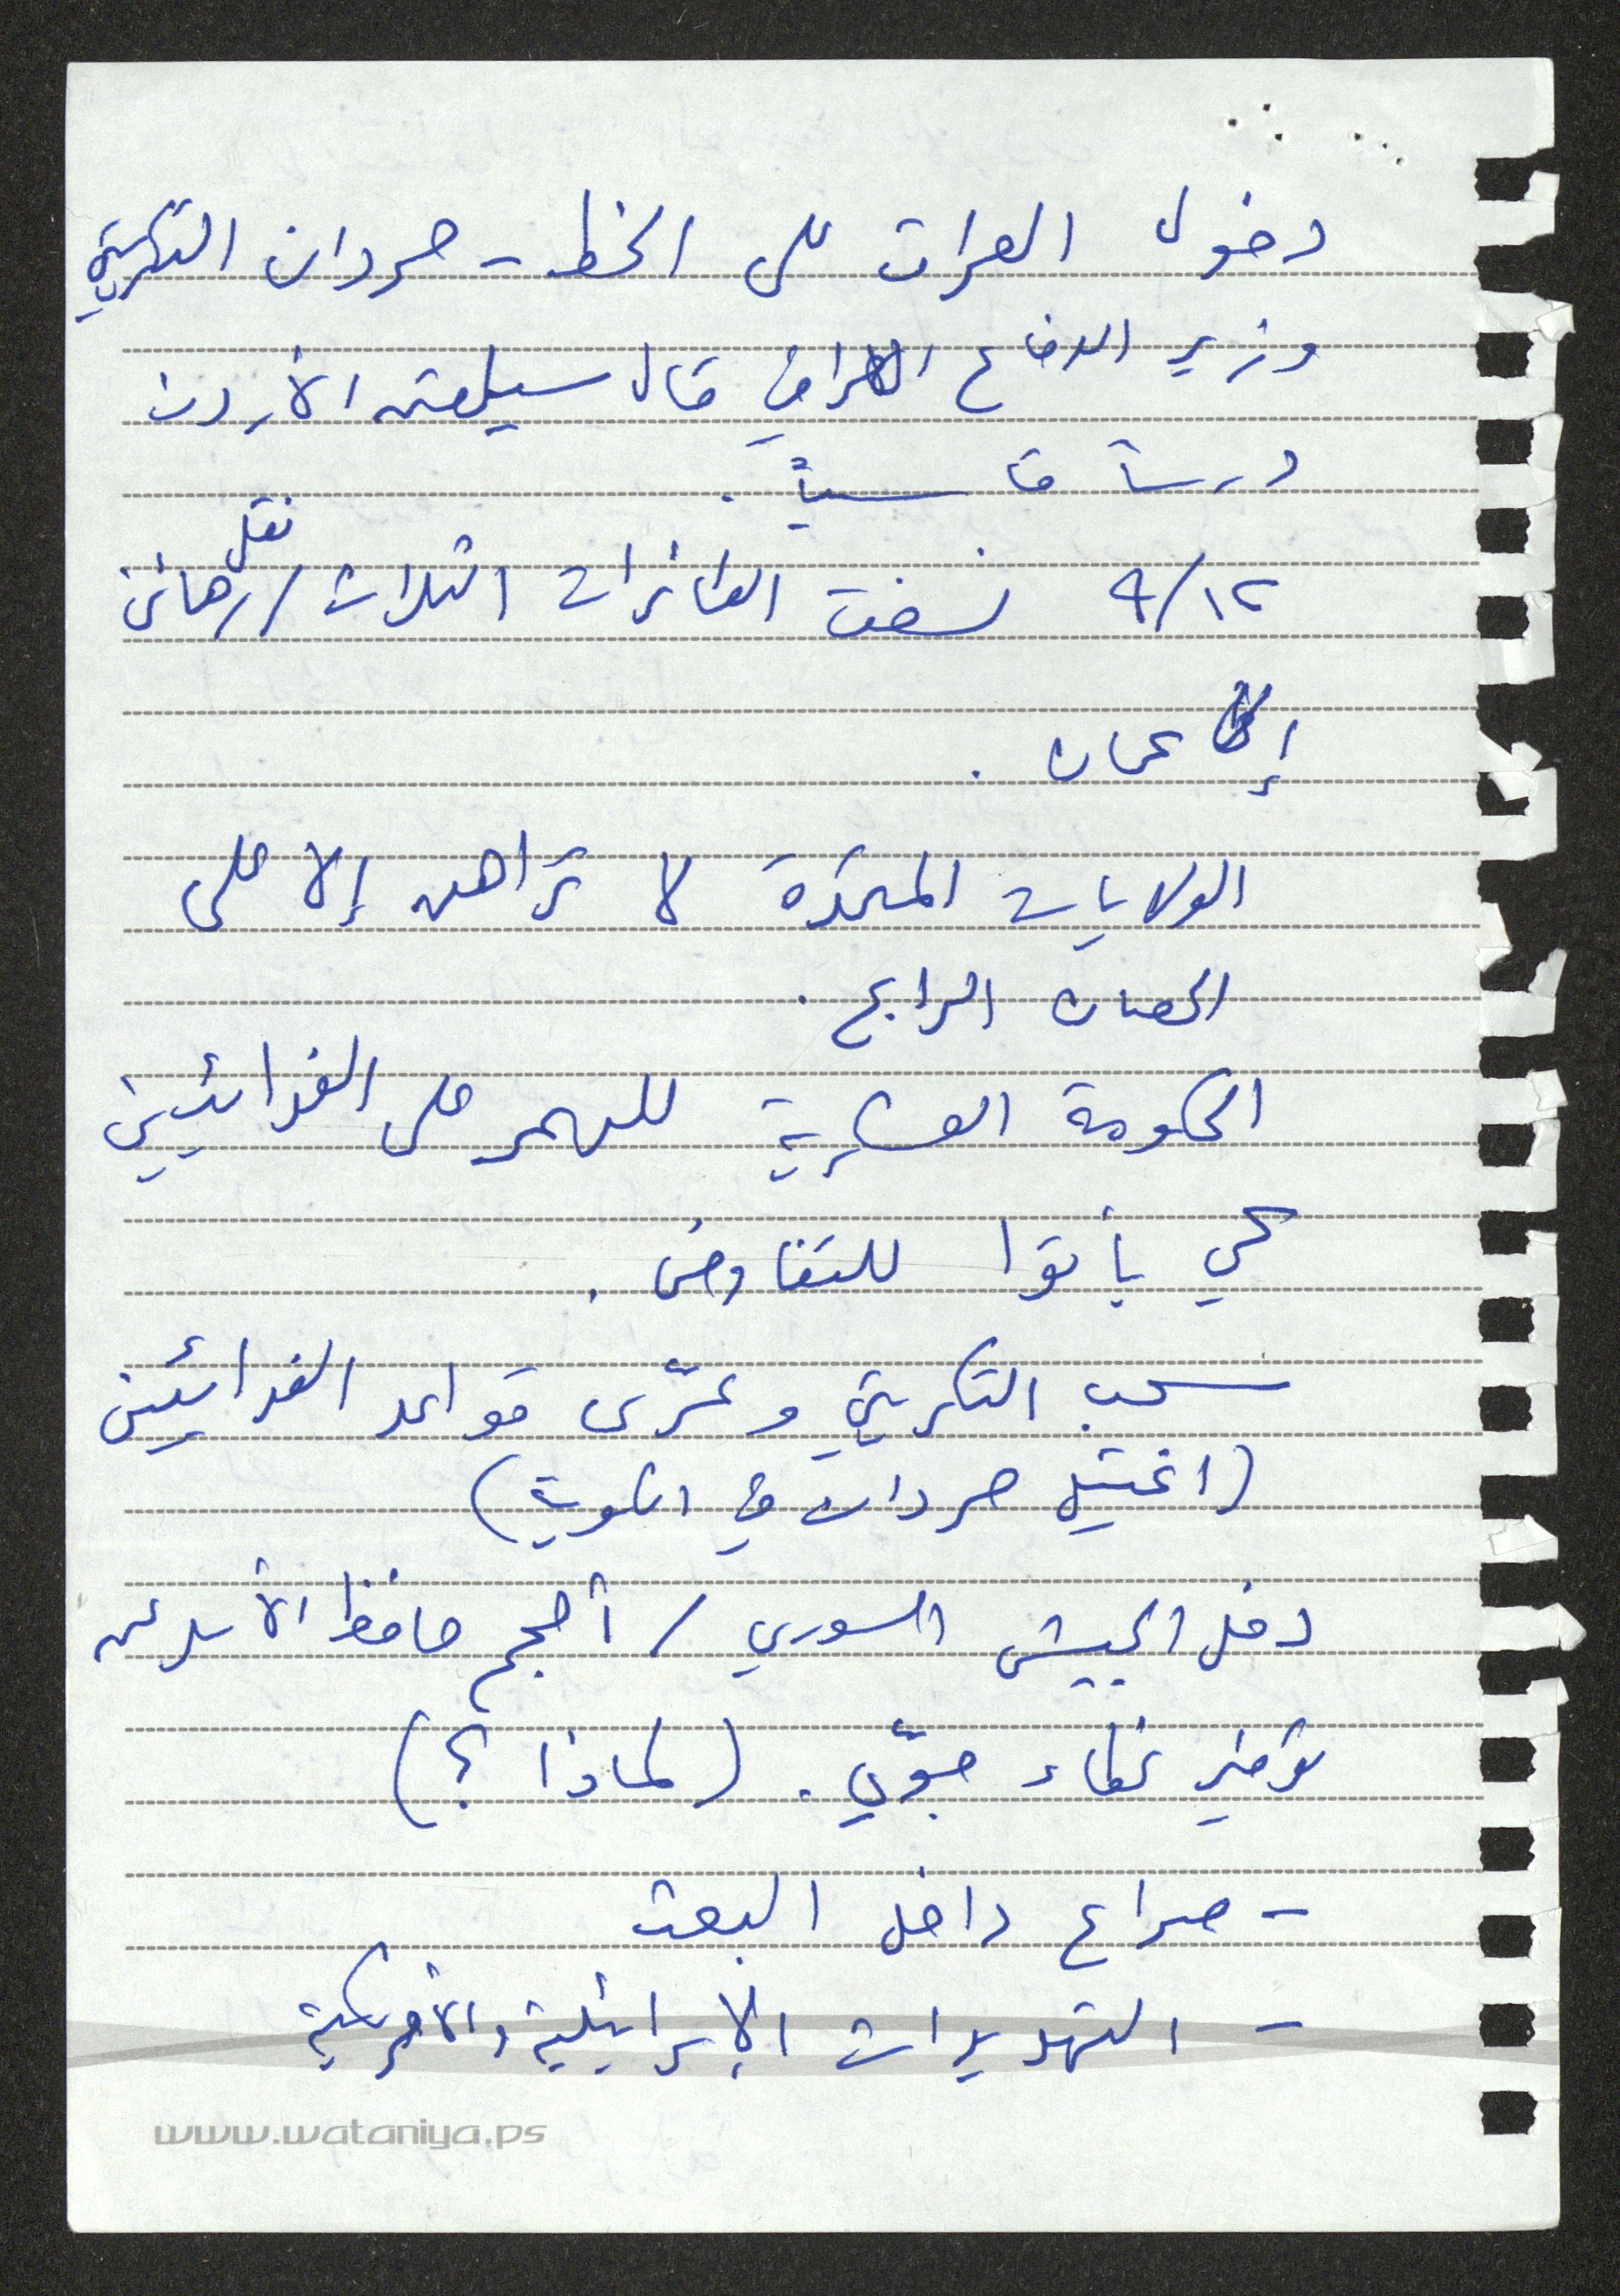 دخول العراق على الخط - حردان التكريتي
وزير الدفاع العراقي قال سيلقن الأردن
درساً قاسياً .
٩/١٢ نسفت الطائرات الثلاث / نقل رهائن
إلى عمان .
الولايات المتحدة لا تراهن إلا على
الحصان الرابح .
الحكومة العسكرية على الفدائيين
كي يأتوا للتفاوض .
سحب التكريتي وعرّى قواعد الفدائيين
(اغتيل حردان في الكويت)
دخل الجيش السوري / أحجم حافظ الأسد عن
توفير غطاء جوّي . (لماذا ؟)
- صراع داخل البعث
- التهديدات الإسرائيلية والأمريكية
www.wataniya.ps